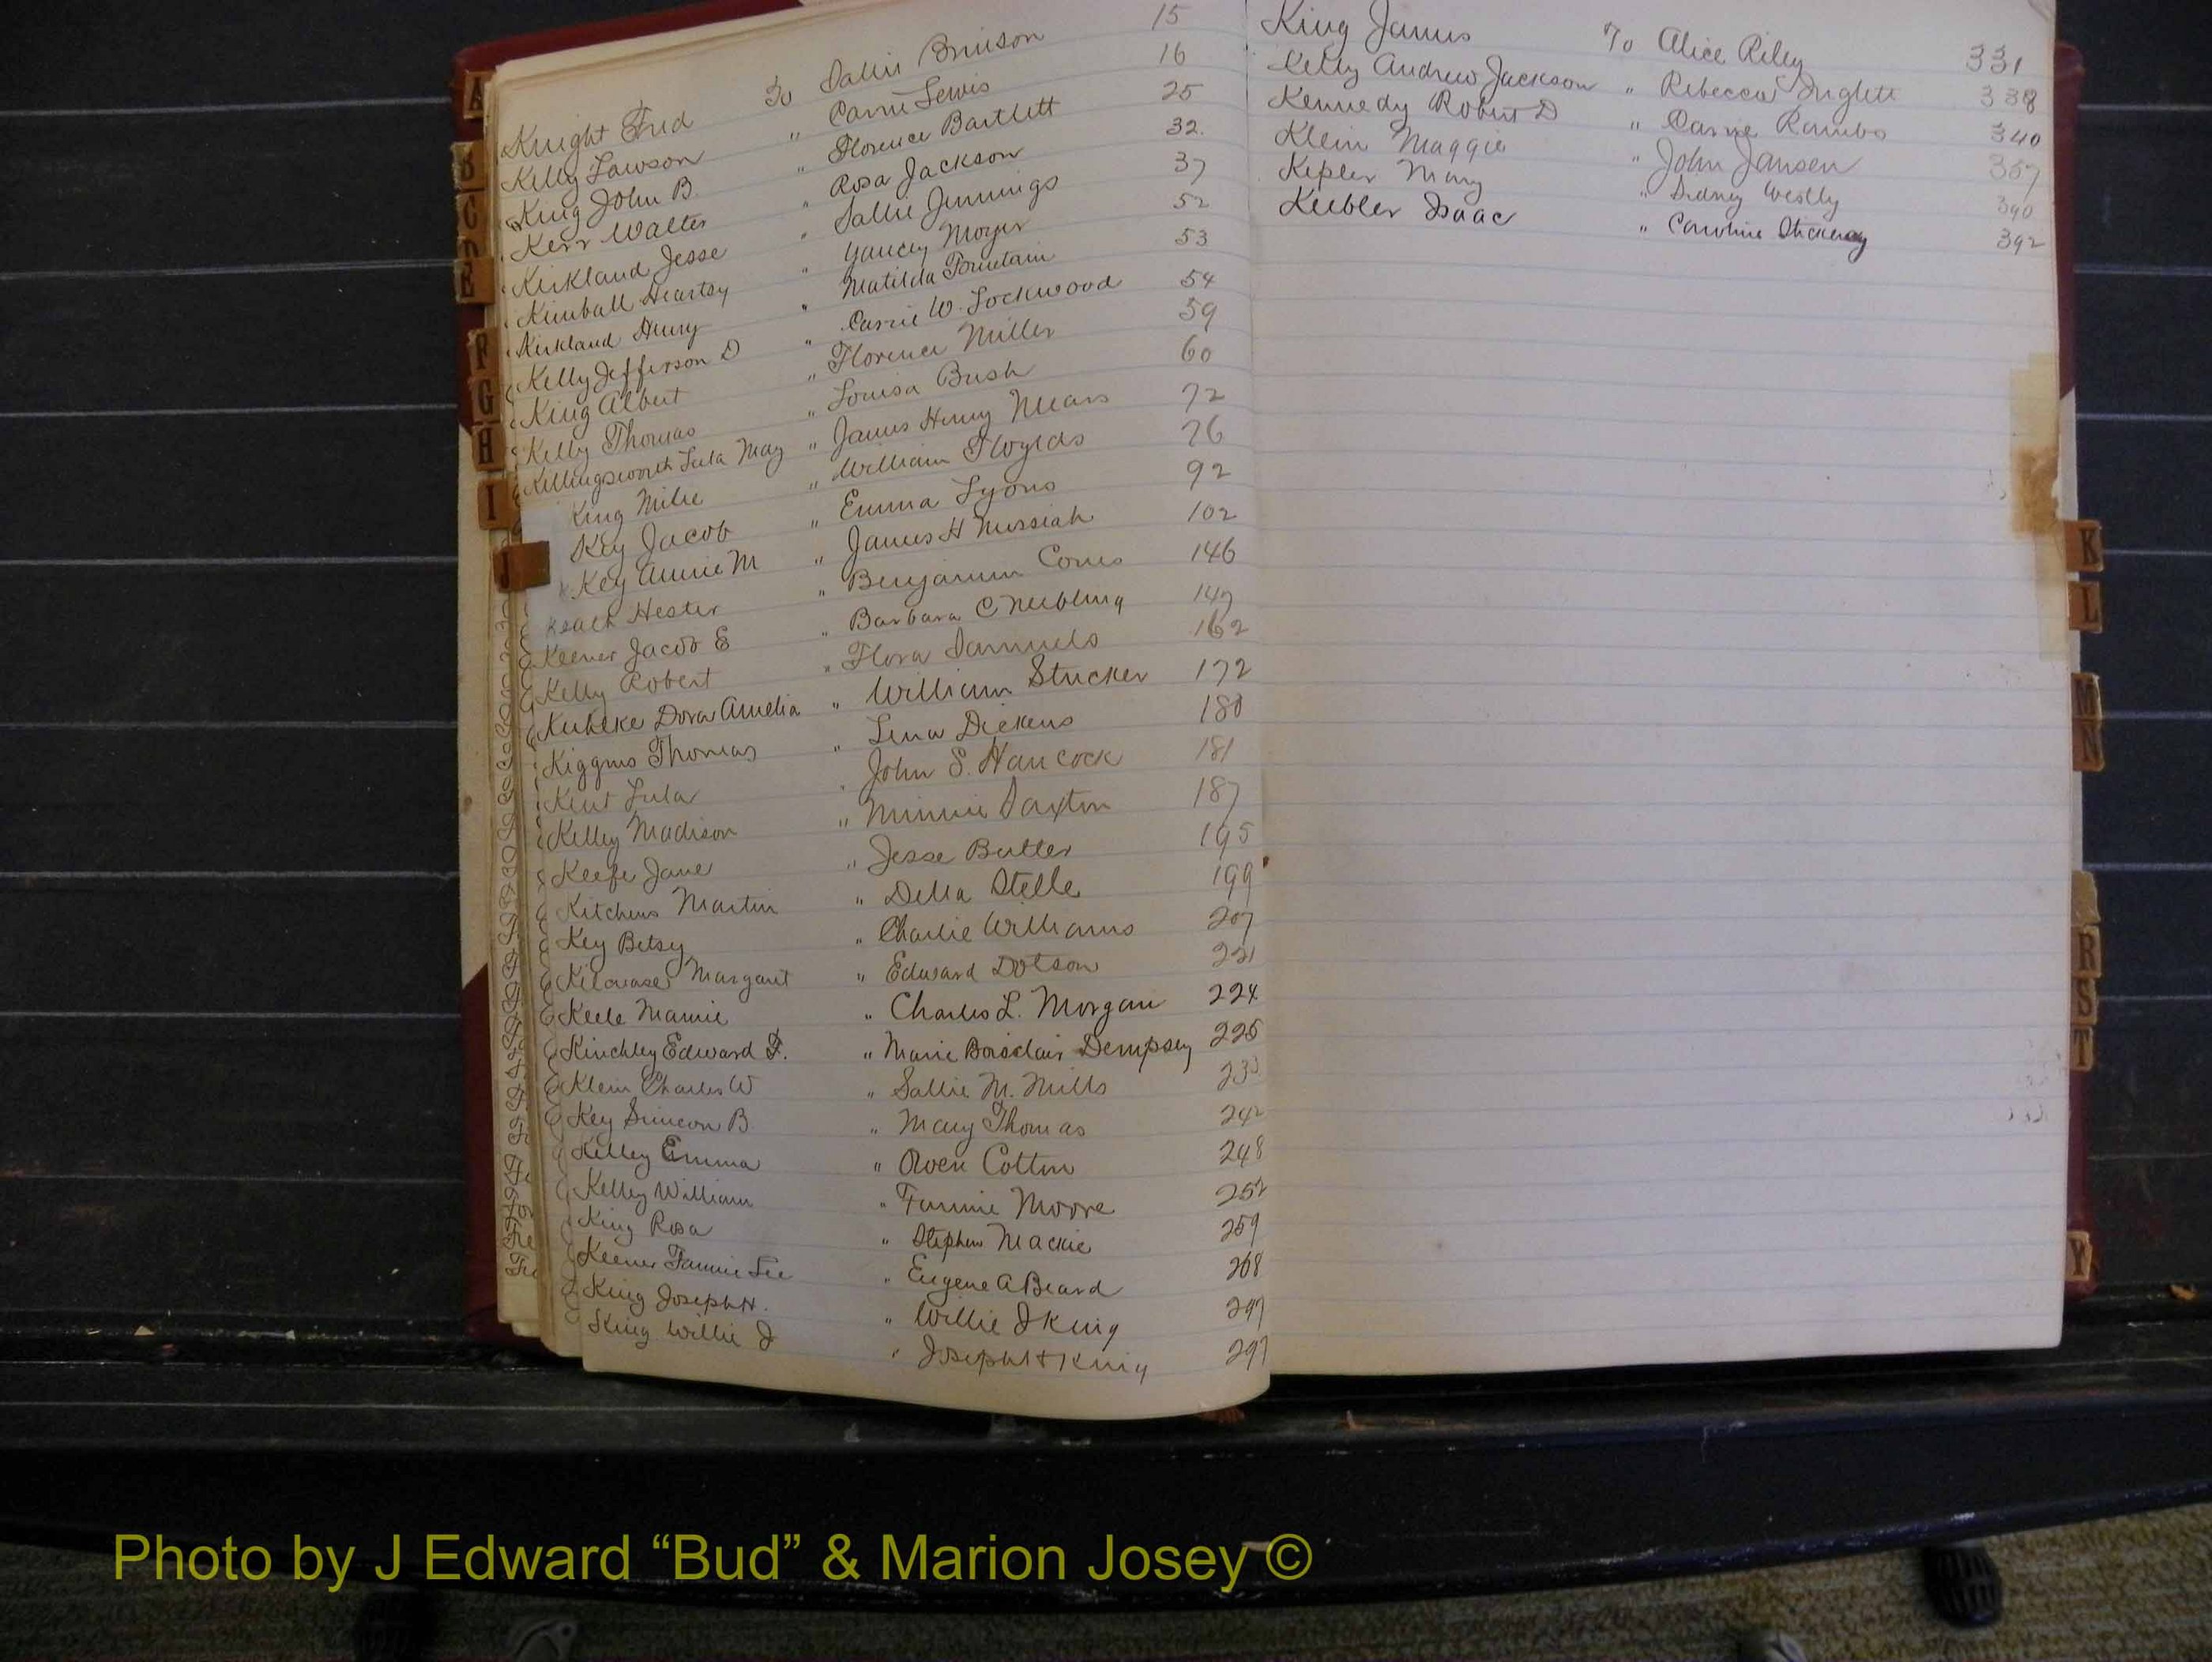 Knight Fred To Sallie Brinson 15
Kelly Lawson " Carrie Lewis 16
King John B. " Florence Bartlett 25
Kerr Walter " Rosa Jackson 32.
Kirkland Jesse " Sallie Jennings 37
Kimball Heartsy " Yancey Moyer 52
Kirkland Henry " Matilda Fountain 53
Kelly Jefferson D " Carrie W. Lockwood 54
King Albert " Florence Miller 59
Kelly Thomas " Louisa Bush 60
Killingsworth Lula May " James Henry Mears 72
King Milie " William 76
Key Jacob " Emma Lyons 92
Key Annie M " James H Messiah 102
Keach Hester " Benjamin 146
Keener Jacob E " Barbara C Neibling 147
Kelly Robert " Flora Samuels 162
Kuhlke Dora Amelia " William Strucker 172
Kiggins Thomas " Lena Dickens 180
Kent Lula " John S. Hancock 181
Kelley Madison " Minnie Saxton 187
Keefe Jane " Jesse Butler 195
Kitchens Martin " Della Stelle 199
Key Betsy " Charlie Williams 207
Margaret " Edward Dotson 221
Keele Mamie " Charles L. Morgan 224
Kinchley Edward F. " Marie Boisclair Dempsey 225
Klein Charles W " Sallie M. Mills
Key Simeon B. " Mary Thomas 242
Kelley Emma " Owen Cotton 248
Kelley William " Fannie Moore 252
King Rosa " Stephen Mackie 259
Keener Fannie Lee " Eugene A Beard 268
King Joseph H. " Willie J King 297
King Willie J " Joseph H King 297
King James To Alice Riley 331
Kelly Andrew Jackson " Rebecca Inglett 338
Kennedy Robert D " Carrie Rambo 340
Klein Maggie " John Jansen 357
Kepler Mary " Sidney Westly 390
Keebler Isaac " Caroline 392
A
B
C
D
E
F
G
H
I
J
K
L
M
N
R
S
T
Y
Photo by J Edward “Bud” & Marion Josey ©